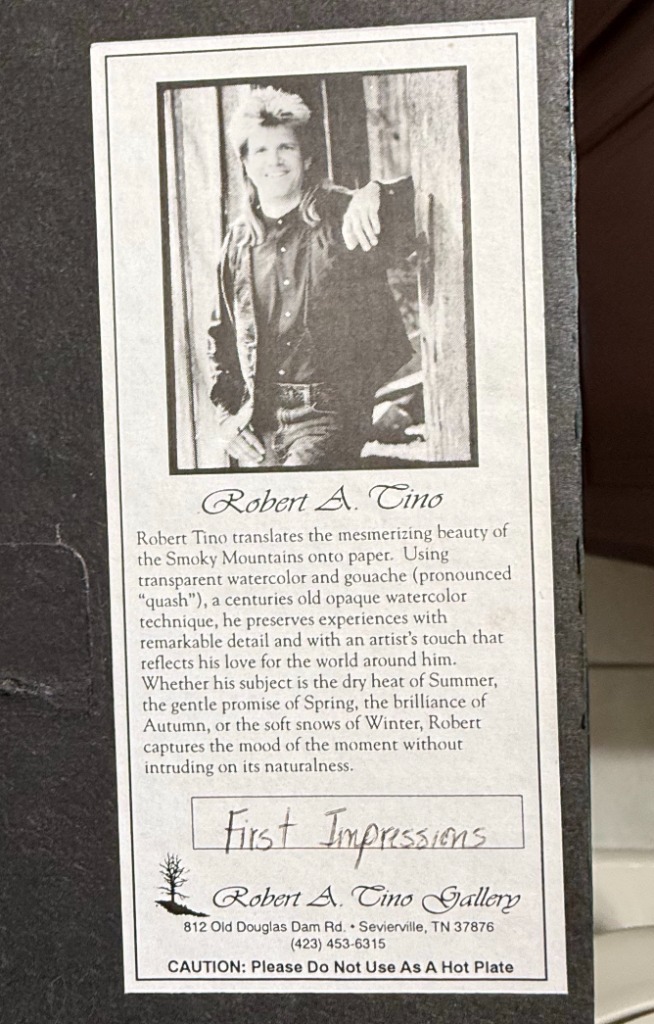 Robert A. Tino
Robert Tino translates the mesmerizing beauty of
the Smoky Mountains onto paper. Using
transparent watercolor and gouache (pronounced
“quash”), a centuries old opaque watercolor
technique, he preserves experiences with
remarkable detail and with an artist's touch that
reflects his love for the world around him.
Whether his subject is the dry heat of Summer,
the gentle promise of Spring, the brilliance of
Autumn, or the soft snows of Winter, Robert
captures the mood of the moment without
intruding on its naturalness.
First Impressions
Robert A. Tino Gallery
812 Old Douglas Dam Rd. • Sevierville, TN 37876
(423) 453-6315
CAUTION: Please Do Not Use As A Hot Plate